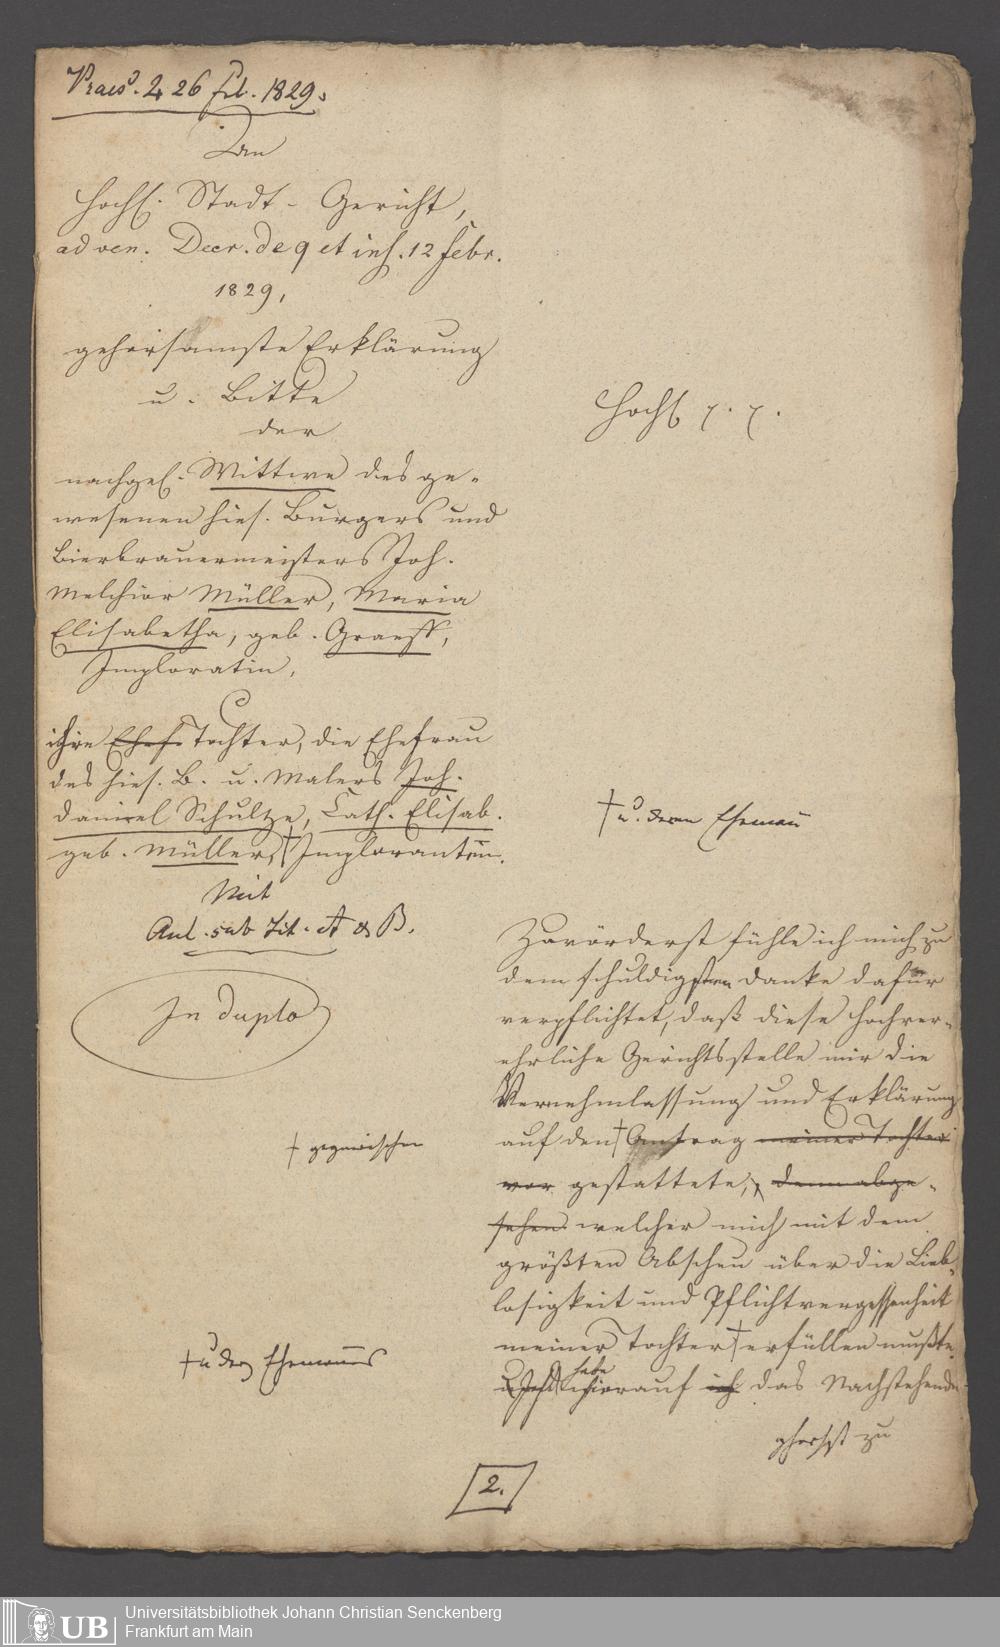 Praes. 4 26 febr. 1829.
An
Hochl. Stadt-Gericht,
ad ven. Decr. de 9 et ins. 12 Febr.
1829,
gehorsamste Erklärung
u. Bitte
der
nachgel. Wittwe des ge-
wesenen hies. Burgers und
Bierbrauermeisters Joh.
Melchior Müller, Maria
Elisabetha, geb. Graeff,
Imploratin,
C
ihre Ehef. Tochter, die Ehefrau
des hies. B. u. Malers Joh.
Daniel Schultze, Cath. Elisab.
geb. Müller, † Implorantin.
Mit
Anl. sub Lit. A & B.
In duplo
† gegnerischen
† u. des Ehemannes
Hochl. p. p.
† u. deren Ehemann
Zuvörderst fühle ich mich zu
dem schuldigsten Danke dafür
verpflichtet, daß diese hochver-
ehrliche Gerichtsstelle mir die
Vernehmlassung und Erklärung
auf den † Antrag meiner Tochter
vor gestattete, denn abge-
sehen welcher mich mit dem
größten Abscheu über die Lieb-
losigkeit und Pflichtvergessenheit
meiner Tochter † erfüllen mußte.
habe
hierauf ich das Nachstehende
ghorsst zu
2.
1
UB
Universitätsbibliothek Johann Christian Senckenberg
Frankfurt am Main